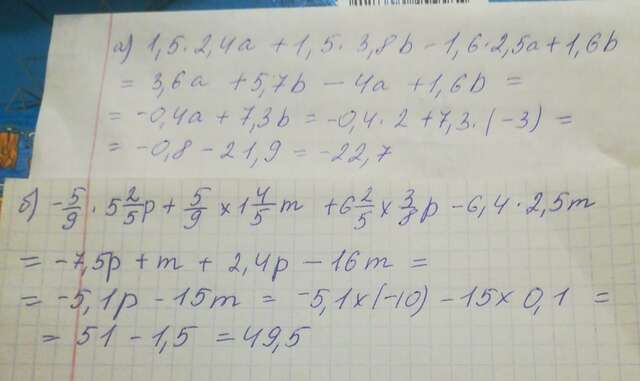 а) 1,5·2,4a + 1,5·3,8b - 1,6·2,5a + 1,6b
= 3,6a + 5,7b - 4a + 1,6b =
= -0,4a + 7,3b = -0,4·2 + 7,3·(-3) =
= -0,8 - 21,9 = -22,7
б) -5/9 · 5 2/5 p + 5/9 × 1 4/5 m + 6 2/5 × 3/8 p - 6,4·2,5m
= -7,5p + m + 2,4p - 16m =
= -5,1p - 15m = -5,1×(-10) - 15×0,1 =
= 51 - 1,5 = 49,5